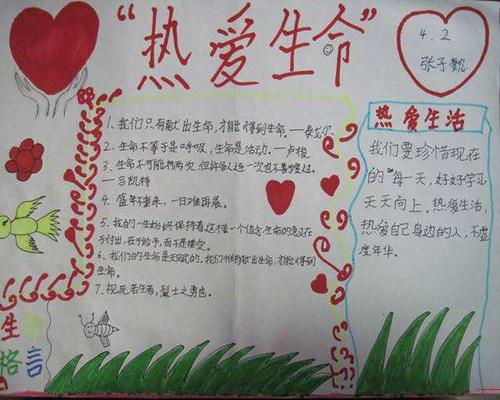 “热爱生命”
4.2
张子懿
1、我们只有献出生命,才能得到生命。——泰戈尔
2、生命不等于是呼吸,生命是活动。——卢梭
3、生命不可能有两次,但许多人连一次也不善度过。
——吕凯特
4、盛年不重来,一日难再晨。
5、我的一生始终保持着这样一个信念:生命的意义在
于付出,在于给予,而不是接受。
6、我们的生命是天赋的,我们惟有献出生命,才能得到生
命。
7、视死若生者,烈士之勇也。
热爱生活
我们要珍惜现在
的每一天,好好学习
天天向上。热爱生活,
热爱自己身边的人,不虚
度年华。
生命
格言